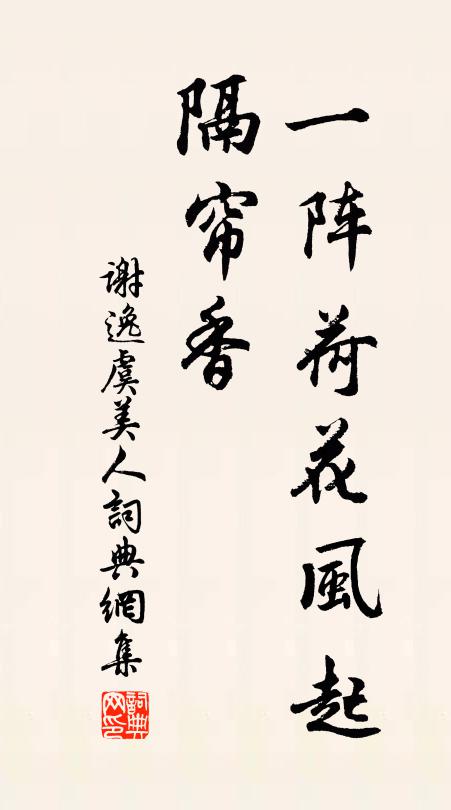 一阵荷花風起
隔帘香
谢逸虞美人詞典網集
詞典
网印